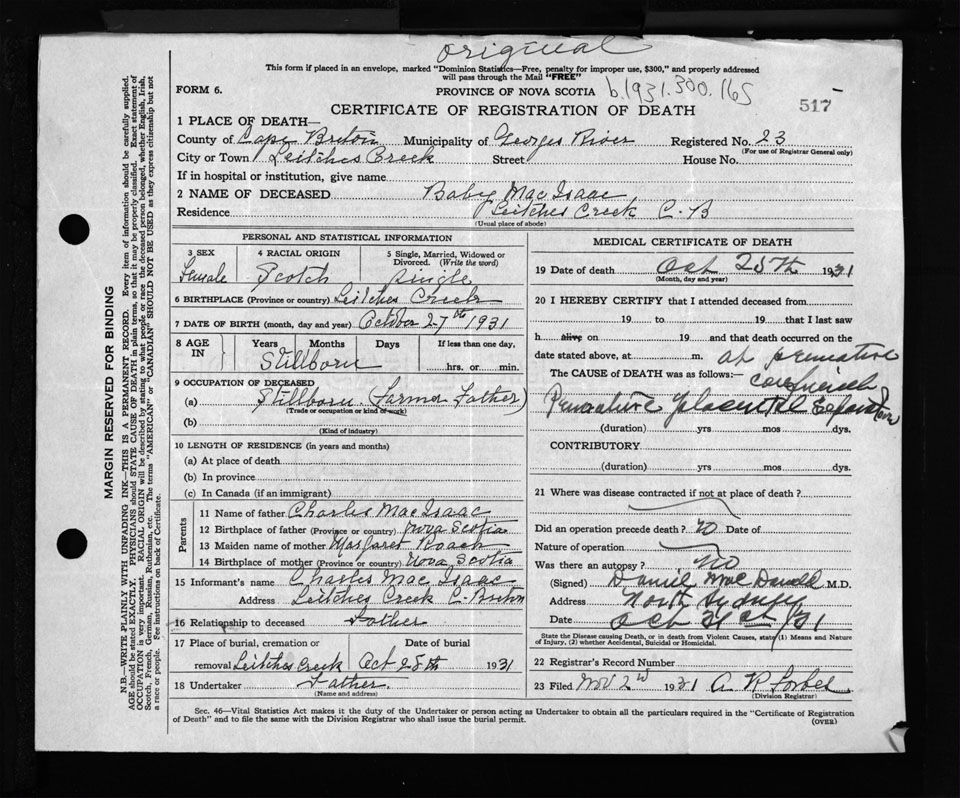 original
This form if placed in an envelope, marked "Dominion Statistics—Free, penalty for improper use, $300," and properly addressed
will pass through the Mail "FREE"
FORM 6. PROVINCE OF NOVA SCOTIA b.1931.300.165
CERTIFICATE OF REGISTRATION OF DEATH 517
1 PLACE OF DEATH—
County of Cape Breton Municipality of Georges River Registered No. 23
(For use of Registrar General only)
City or Town Leitches Creek Street House No.
If in hospital or institution, give name
2 NAME OF DECEASED Baby Mac Isaac
Residence Leitches Creek C-B
(Usual place of abode)
PERSONAL AND STATISTICAL INFORMATION
3 SEX 4 RACIAL ORIGIN 5 Single, Married, Widowed or
Divorced. (Write the word)
Female Scotch single
6 BIRTHPLACE (Province or country) Leitches Creek
7 DATE OF BIRTH (month, day and year) October 27th 1931
8 AGE IN Years Months Days If less than one day,
Stillborn hrs. or min.
9 OCCUPATION OF DECEASED
(a) Stillborn (Farmer Father)
(Trade or occupation or kind of work)
(b)
(Kind of industry)
10 LENGTH OF RESIDENCE (in years and months)
(a) At place of death
(b) In province
(c) In Canada (if an immigrant)
Parents
11 Name of father Charles Mac Isaac
12 Birthplace of father (Province or country) Nova Scotia
13 Maiden name of mother Margaret Roach
14 Birthplace of mother (Province or country) Nova Scotia
15 Informant's name Charles Mac Isaac
Address Leitches Creek C-Breton
16 Relationship to deceased Father
17 Place of burial, cremation or Date of burial
removal Leitches Creek Oct 28th 1931
18 Undertaker Father
(Name and address)
MEDICAL CERTIFICATE OF DEATH
19 Date of death Oct 28th 1931
(Month, day and year)
20 I HEREBY CERTIFY that I attended deceased from
19 to 19 that I last saw
h alive on 19 and that death occurred on the
date stated above, at m. at premature
The CAUSE of DEATH was as follows:—
Premature placental Separation
(duration) yrs mos dys.
CONTRIBUTORY
(duration) yrs mos dys.
21 Where was disease contracted if not at place of death?
Did an operation precede death? No Date of
Nature of operation
Was there an autopsy? No
(Signed) Daniel MacDonald M.D.
Address North Sydney
Date Oct 31st /31
State the Disease causing Death, or in death from Violent Causes, state (1) Means and Nature
of Injury, (2) whether Accidental, Suicidal or Homicidal.
22 Registrar's Record Number
23 Filed Nov 2nd 1931 A R Forbes
(Division Registrar)
Sec. 46—Vital Statistics Act makes it the duty of the Undertaker or person acting as Undertaker to obtain all the particulars required in the "Certificate of Registration
of Death" and to file the same with the Division Registrar who shall issue the burial permit.
(OVER)
MARGIN RESERVED FOR BINDING
N.B.—WRITE PLAINLY WITH UNFADING INK—THIS IS A PERMANENT RECORD. Every item of information should be carefully supplied.
AGE should be stated EXACTLY. PHYSICIANS should STATE CAUSE OF DEATH in plain terms, so that it may be properly classified. Exact statement of
OCCUPATION is very important. RACIAL ORIGIN will be described by stating to what people or race the deceased person belonged, whether English, Irish,
Scotch, French, German, Russian, Ruthenian, etc. The terms "AMERICAN" or "CANADIAN" SHOULD NOT BE USED as they express citizenship but not
a race or people. See instructions on back of Certificate.